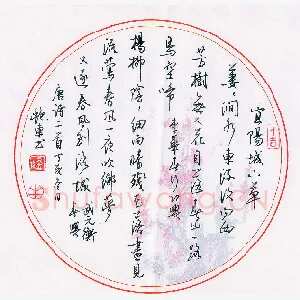 宜陽城下草
萋〻澗水東流復向西
芳樹無人花自落春山一路
鳥空啼 李華春行寄興
楊柳陰〻細雨晴殘花落盡見
流鶯春風一夜吹鄉夢
又逐春風到洛城 武元衡
春興
唐詩二首丁亥冬月